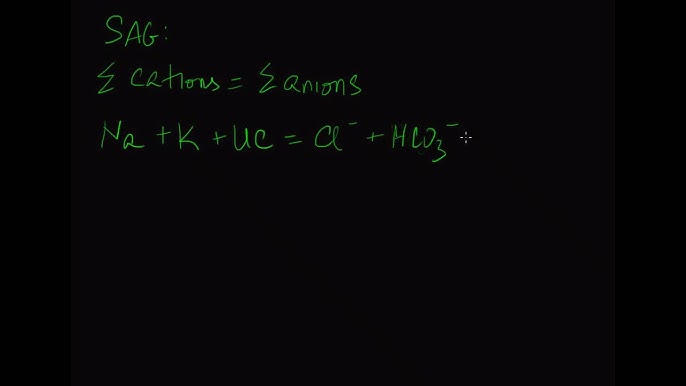 SAG:
Σ cations = Σ anions
Na + K + UC = Cl⁻ + HCO₃⁻